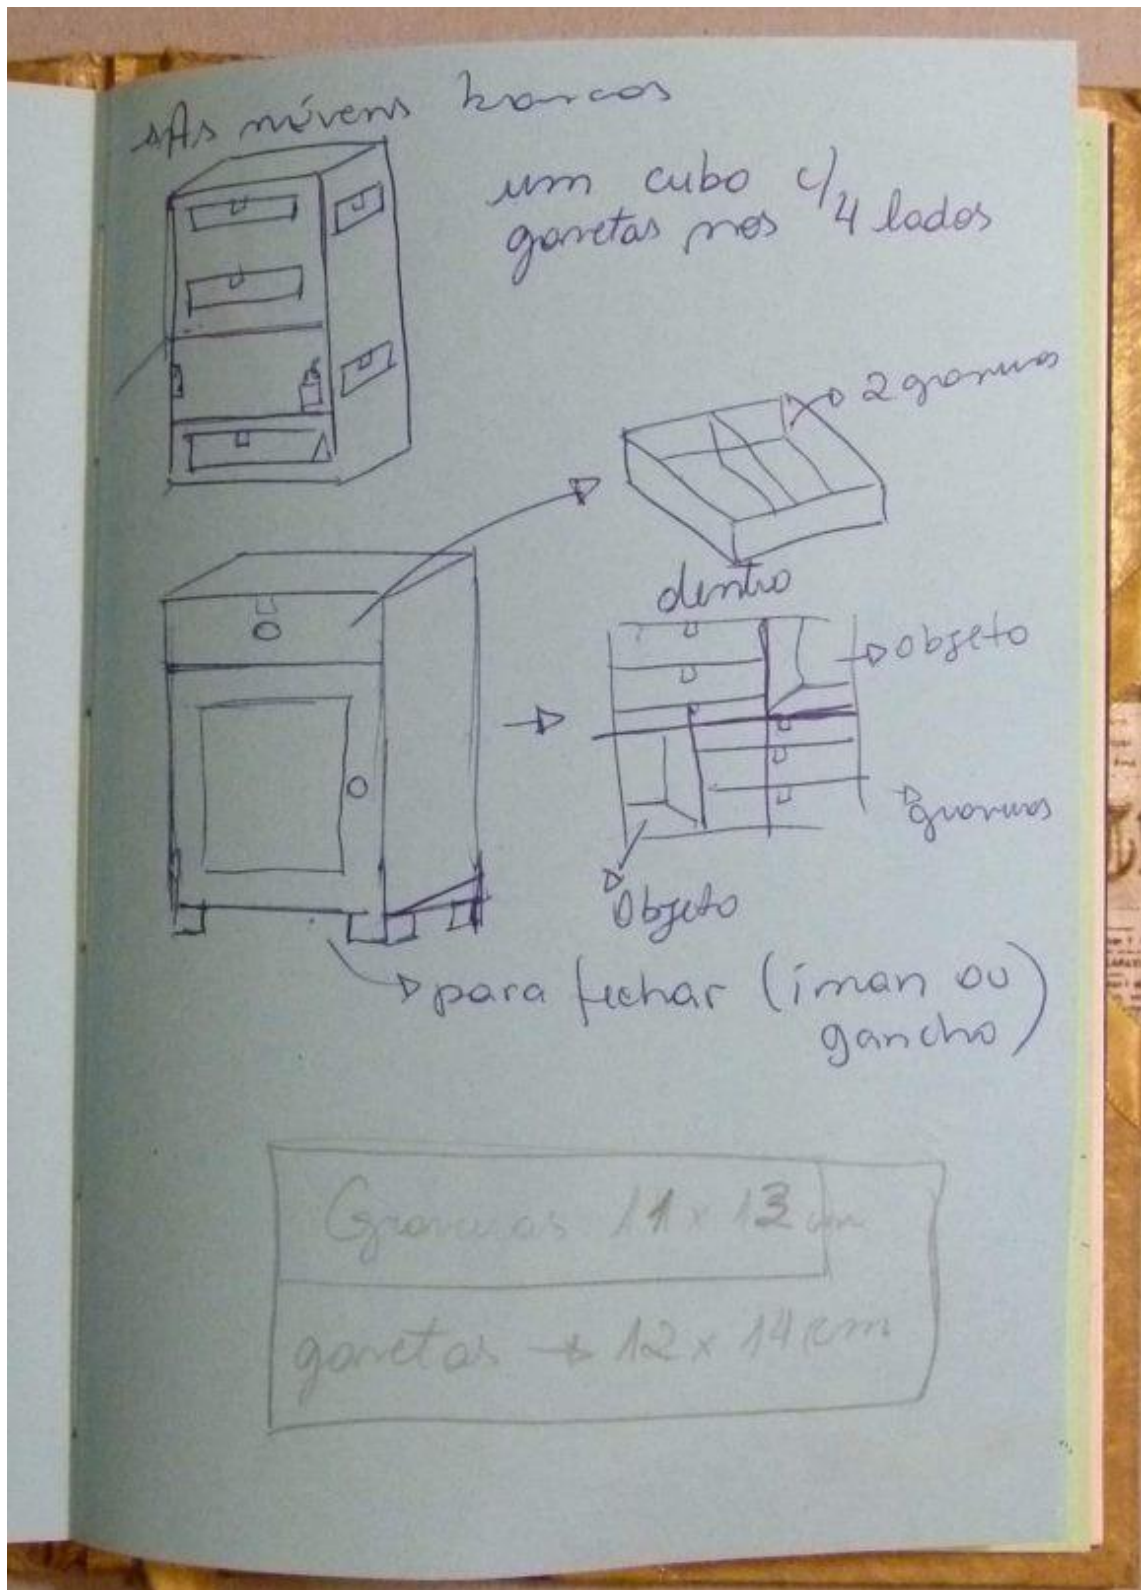 As móvens brancos
um cubo c/
gavetas nos 4 lados
2 gravuras
dentro
Objeto
gravuras
Objeto
para fechar (iman ou
gancho)
Gravuras 11 x 13 cm
gavetas → 12 x 14 cm